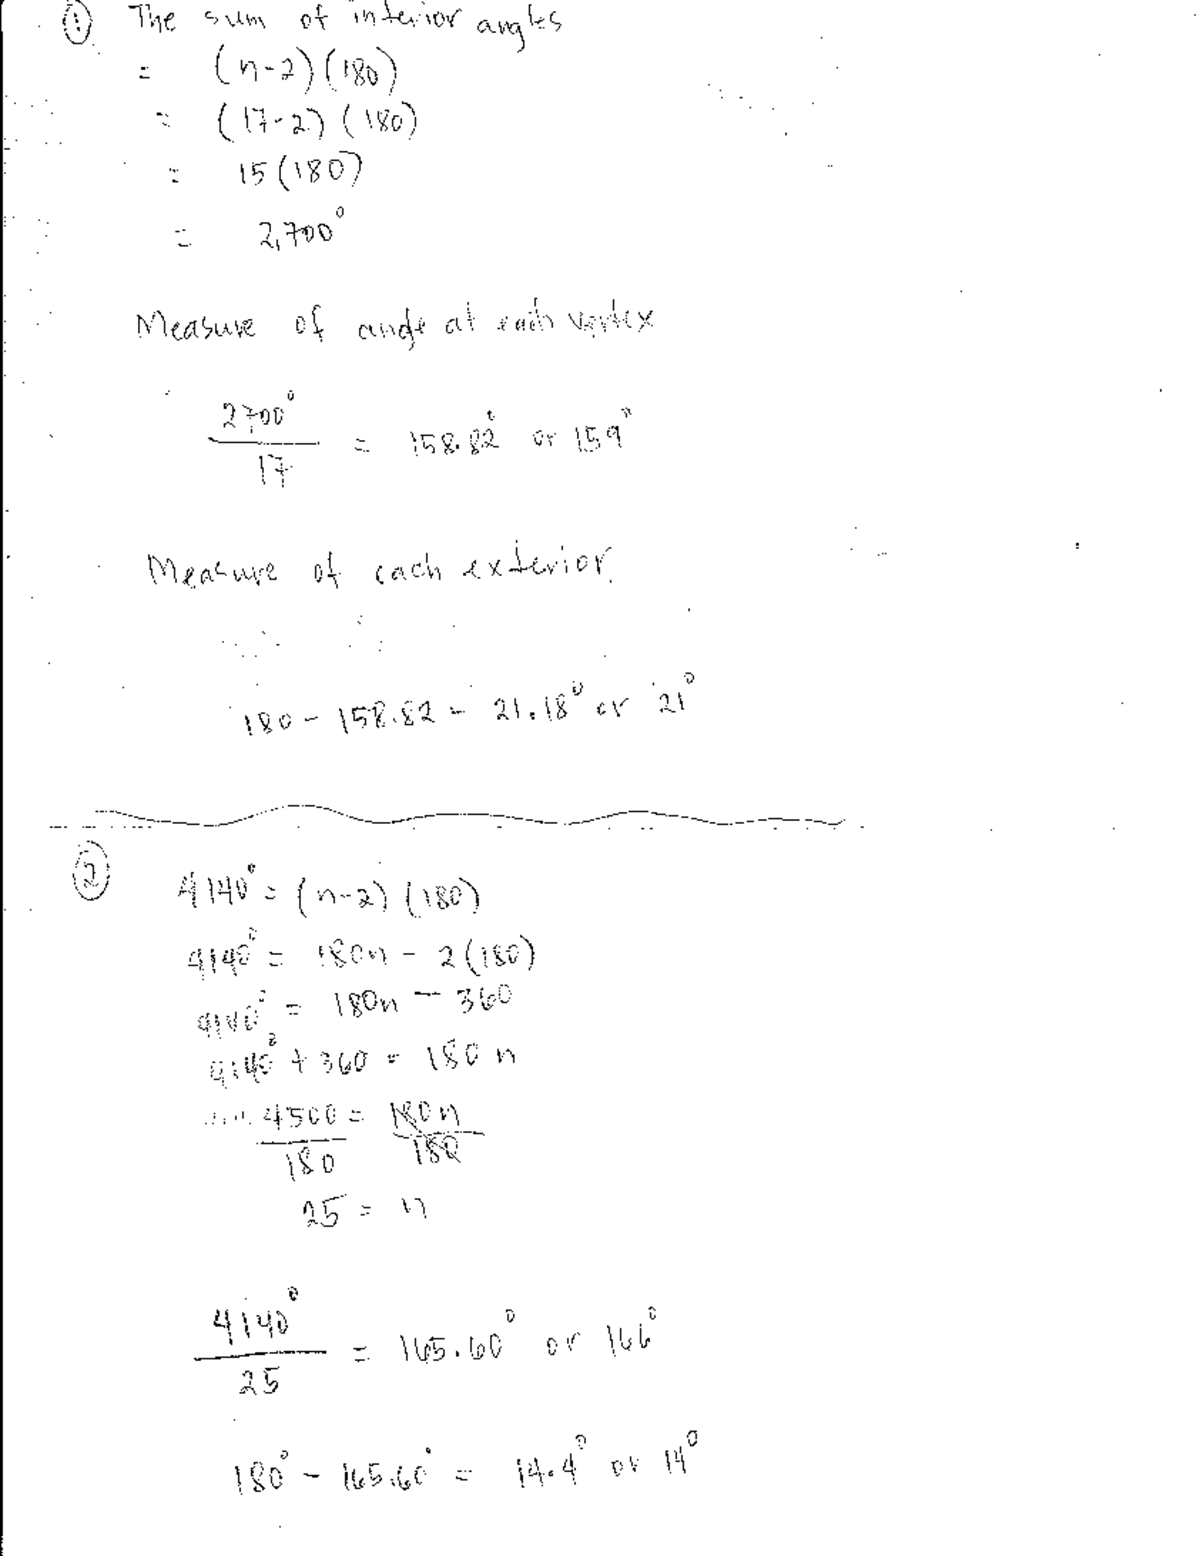 ① The sum of interior angles
= (n-2)(180)
= (17-2)(180)
= 15(180)
= 2,700°
Measure of angle at each vertex
2700°
17
= 158.82° or 159°
Measure of each exterior.
180 - 158.82 = 21.18° or 21°
② 4140° = (n-2)(180)
4140° = 180n - 2(180)
4140° = 180n - 360
4140° + 360 = 180n
4500 = 180n
180 180
25 = n
4140°
25
= 165.60° or 166°
180° - 165.60° = 14.4° or 14°